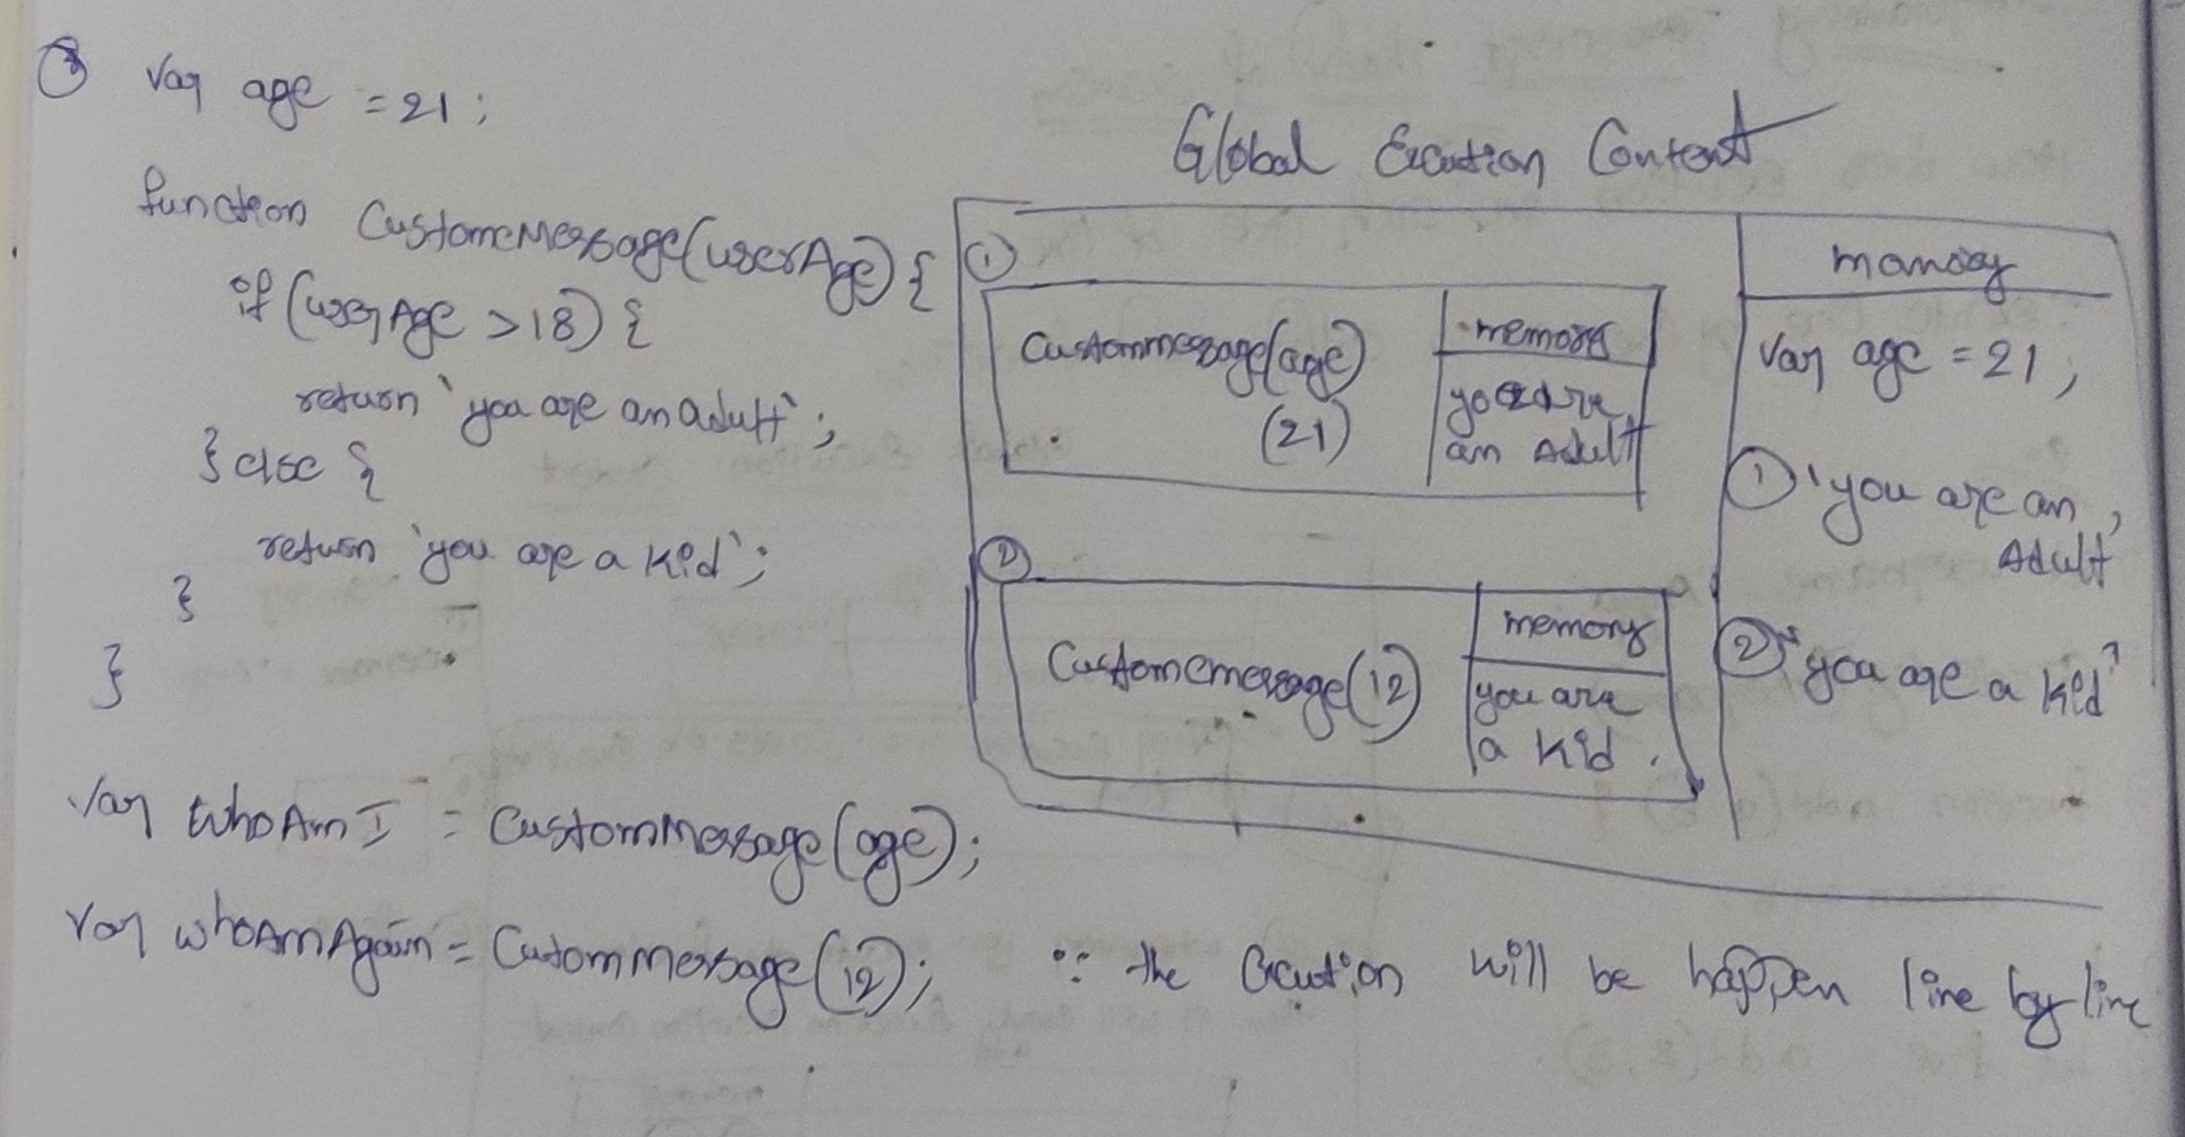 ③ Var age = 21;
function CustomeMessage(userAge) {
if (userAge >18) {
return `you are an adult`;
} else {
return `you are a kid`;
}
}
Var WhoAmI = CustomMessage(age);
Var whoAmAgain = CutomMessage(12);
Global Excution Content
①
Custommessage(age)
(21)
memory
you are
an Adult
②
Customemessage(12)
memory
you are
a kid.
mamory
Var age = 21;
① 'you are an
Adult'
② "you are a kid"
∵ the Excution will be happen line by line